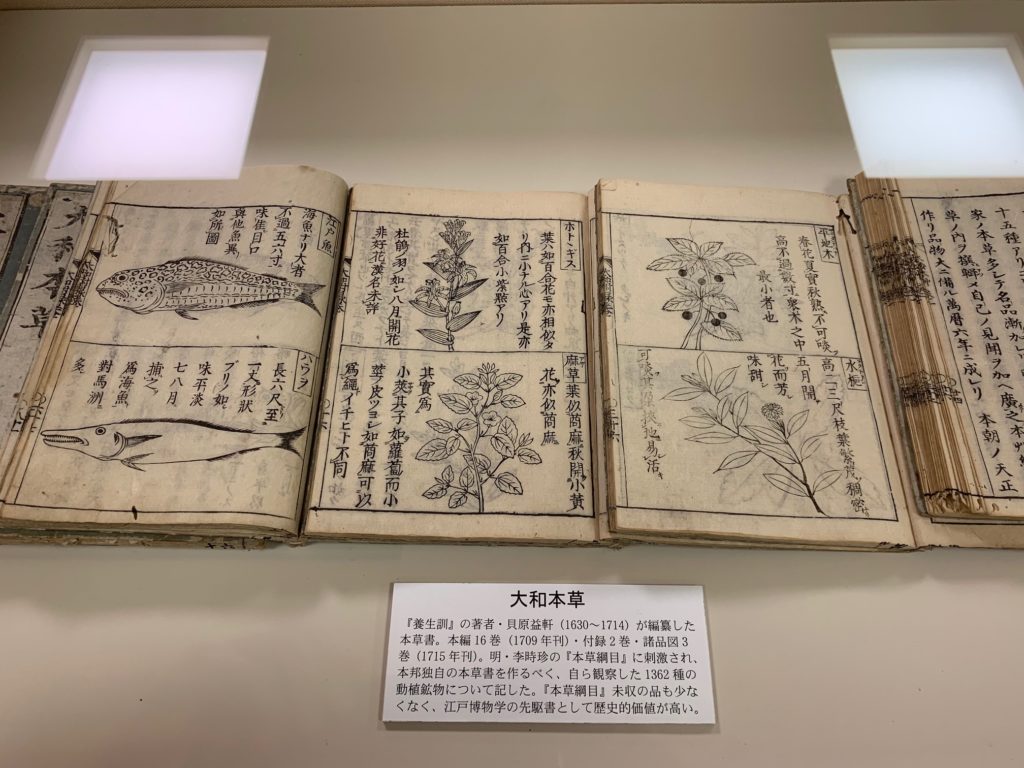 作リ品物大ニ備ル萬暦六年ニ成レリ 本朝ノ天正
平地木
春花夏實秋熟不可啖
高不過數寸衆木之中
最小者也
水梔
五月開
花而芳
味甜
ホトヽギス
葉ハ如百合花モ亦相似タ
リ内ニ小ナル心アリ是亦
如百合小葉點アリ
杜鵑羽ノ如シ八月開花
非好花漢名未詳
麻草葉似苘麻秋開小黄
花亦似苘麻
其實爲
小莢其子如蘿蔔而小
莖皮ツヨシ如苘麻可以
爲繩イチヒト不同
海魚ナリ大者
不過五六寸
味佳目口
與他魚異
如所圖
長六尺至
一丈形狀
ブリノ如
味平淡
七八月
捕之
爲海魚
對馬洲
大和本草
『養生訓』の著者・貝原益軒（1630～1714）が編纂した
本草書。本編16巻（1709年刊）・付録2巻・諸品図3
巻（1715年刊）。明・李時珍の『本草綱目』に刺激され、
本邦独自の本草書を作るべく、自ら観察した1362種の
動植鉱物について記した。『本草綱目』未収の品も少な
くなく、江戸博物学の先駆書として歴史的価値が高い。